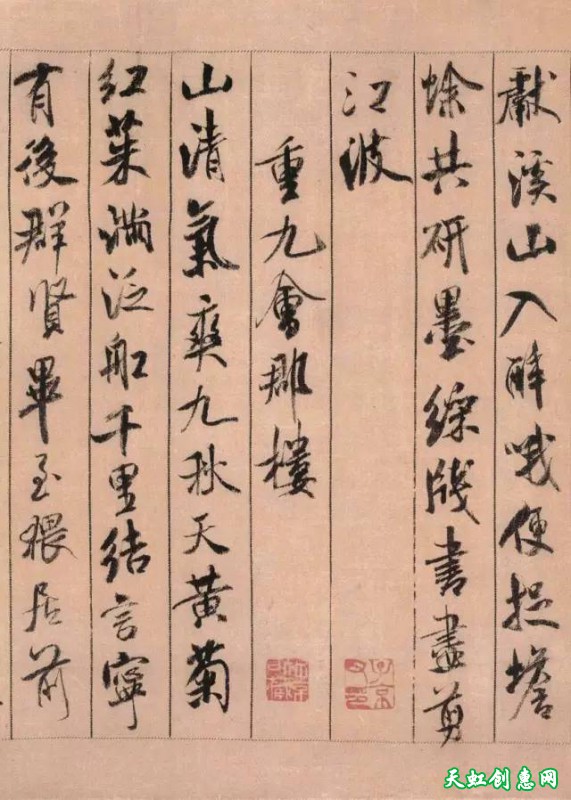 獻溪山入醉哦便捉蟾
蜍共研墨綵牋書盡剪
江波
重九會郡樓
山清氣爽九秋天黃菊
紅茱滿泛舡千里結言寧
有後群賢畢至猥居前
天虹创惠网